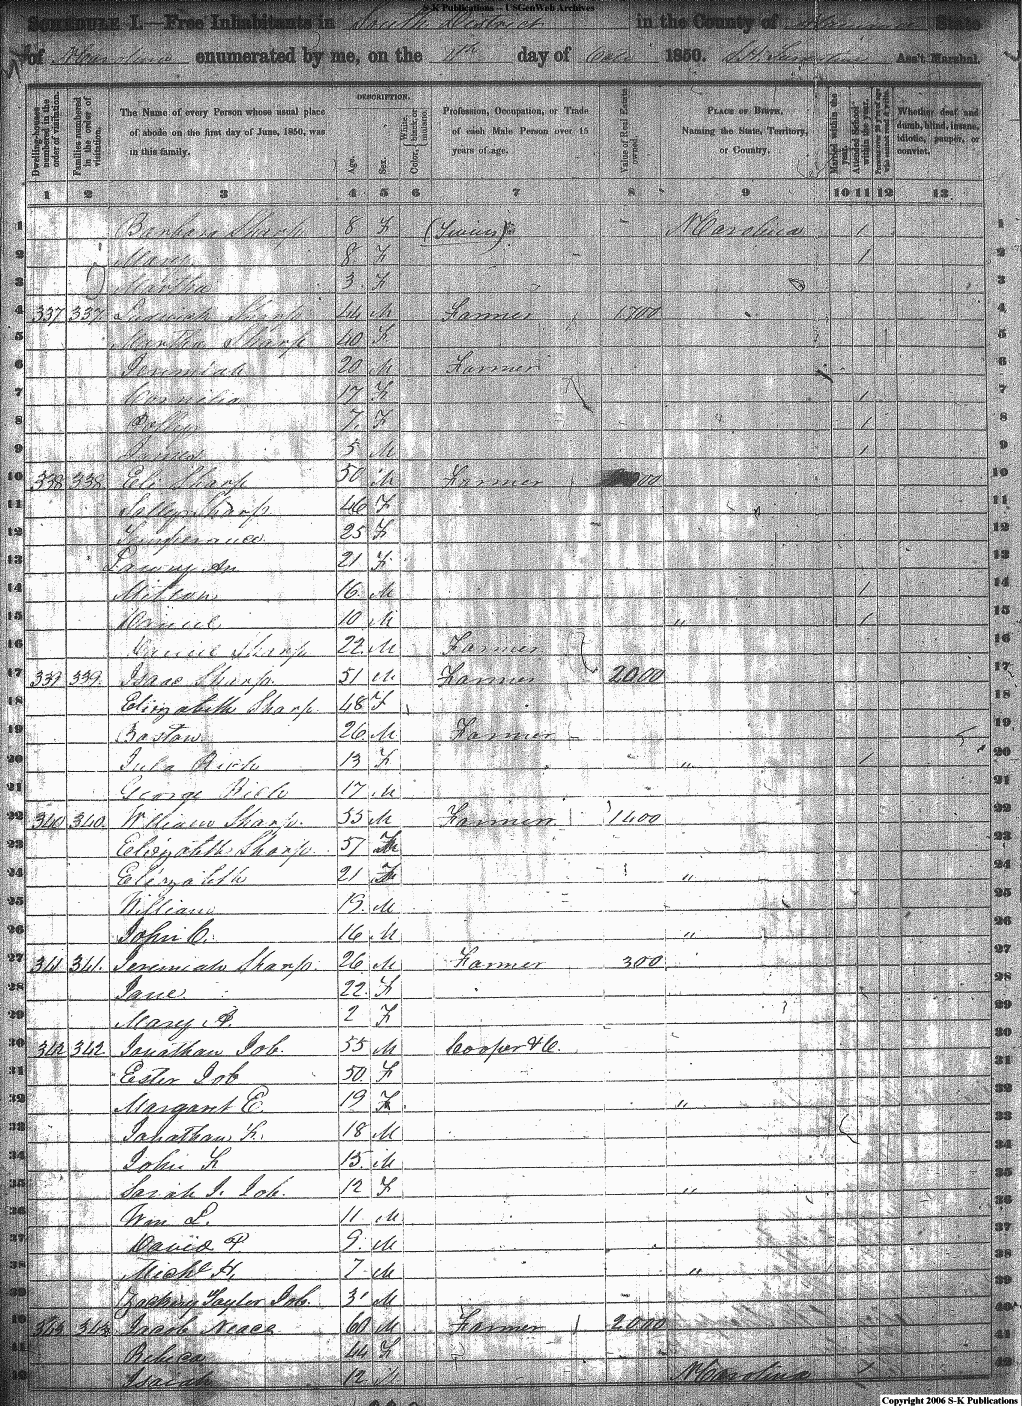 S-K Publications -- USGenWeb Archives
SCHEDULE I.—Free Inhabitants in South District in the County of State
of N Carolina enumerated by me, on the day of 1850. Ass't Marshal.
Dwelling-houses numbered in the order of visitation.
Families numbered in the order of visitation.
The Name of every Person whose usual place of abode on the first day of June, 1850, was in this family.
DESCRIPTION.
Age.
Sex.
Color, White, black, or mulatto.
Profession, Occupation, or Trade of each Male Person over 15 years of age.
Value of Real Estate owned.
PLACE OF BIRTH, Naming the State, Territory, or Country.
Married within the year.
Attended School within the year.
Persons over 20 y'rs of age who cannot read & write.
Whether deaf and dumb, blind, insane, idiotic, pauper, or convict.
1 2 3 4 5 6 7 8 9 10 11 12 13
1 Barbara Sharp 8 F (Twins) N Carolina 1 1
2 Mary 8 F 1 2
3 Martha 3 F 3
4 337 337 Sharp 44 M Farmer 1700 4
5 Martha Sharp 40 F 5
6 Jeremiah 20 M Farmer 6
7 Cornelia 17 F 1 7
8 Polly 7 F 1 8
9 James 5 M 1 9
10 338 338 Eli Sharp 50 M Farmer 00 10
11 Sally Sharp 46 F 11
12 Temperance 25 F 12
13 An 21 F 13
14 Milton 16 M 1 14
15 Daniel 10 M " 1 15
16 Daniel Sharp 22 M Farmer 16
17 339 339 Isaac Sharp 51 M Farmer 2000 17
18 Elizabeth Sharp 48 F 18
19 Boston 26 M Farmer 19
20 Julia 13 F " 1 20
21 George 17 M 21
22 340 340 William Sharp 55 M Farmer 1400 22
23 Elizabeth Sharp 57 F 23
24 Elizabeth 21 F " 24
25 William 19 M 25
26 John C. 16 M " 26
27 341 341 Jeremiah Sharp 26 M Farmer 300 27
28 Jane 22 F 28
29 Mary A. 2 F 29
30 342 342 Jonathan Job. 55 M Cooper & C. 30
31 Ester Job 50 F 32
32 Margant E. 19 F " 33
33 Jonathan 18 M 34
34 John F 15 M 35
35 Sarah J. Job. 12 F " 36
36 Wm L. 11 M 37
37 David 9 M 38
38 Michl H, 7 M " 39
39 Zachery Taylor Job. 3 M 40
343 343 Jacob Neace 61 M Farmer 2000 41
Rebeca 44 F 42
Isaiah 12 N Carolina 1
Copyright 2006 S-K Publications